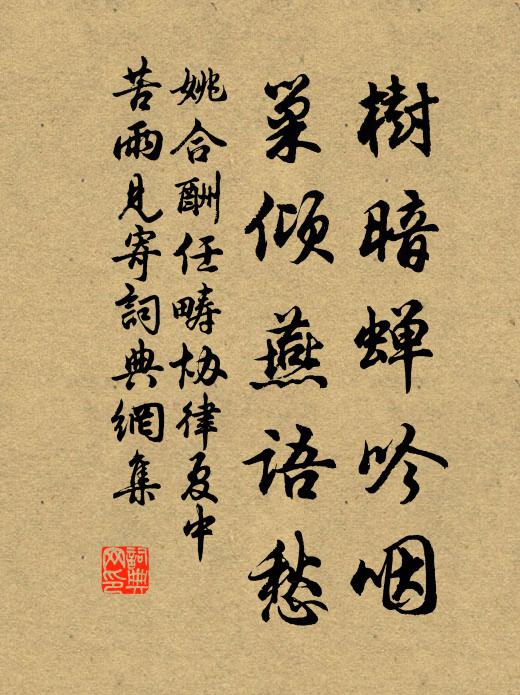 樹暗蝉吟咽
巢倾燕語愁
姚合酬任畴协律夏中
苦雨見寄詞典網集
詞典
网印